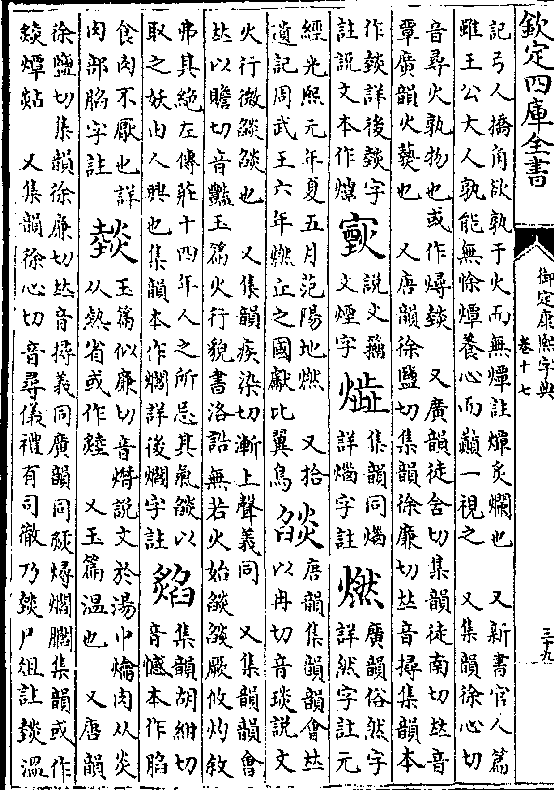 欽定四庫全書
御定康熙字典
卷十七
三十九
記弓人撟角欲孰于火而無燂註燂炙爛也　又新書官人篇
雖王公大人孰能無悇燂養心而巔一視之　又集韻徐心切
音尋火孰物也或作燖錟　又廣韻徒含切集韻徒南切𠀤音
覃廣韻火爇也　又唐韻徐鹽切集韻徐廉切𠀤音撏集韻本
作燅詳後燅字
註說文本作燂
說文籀
文煙字
集韻同㷄
詳㷄字註
燃
廣韻俗然字
詳然字註元
經光熙元年夏五月范陽地燃　又拾
遺記周武王六年燃丘之國獻比翼鳥
燄
唐韻集韻韻會𠀤
以冉切音琰說文
火行微燄燄也　又集韻疾染切漸上聲義同　又集韻韻會
𠀤以贍切音豔玉篇火行貌書洛誥無若火始燄燄厥攸灼敘
弗其絶左傳莊十四年人之所忌其氣燄以
取之妖由人興也集韻本作爓詳後爓字註
集韻胡紺切
音憾本作䐄
食肉不厭也詳
肉部䐄字註
燅
玉篇似廉切音燂說文於湯中爚肉从炎
从熱省或作𤑔　又玉篇溫也　又唐韻
徐鹽切集韻徐廉切𠀤音撏義同廣韻同燖爓集韻或作
燅燂㶣　又集韻徐心切音尋儀禮有司徹乃燅尸俎註燅溫